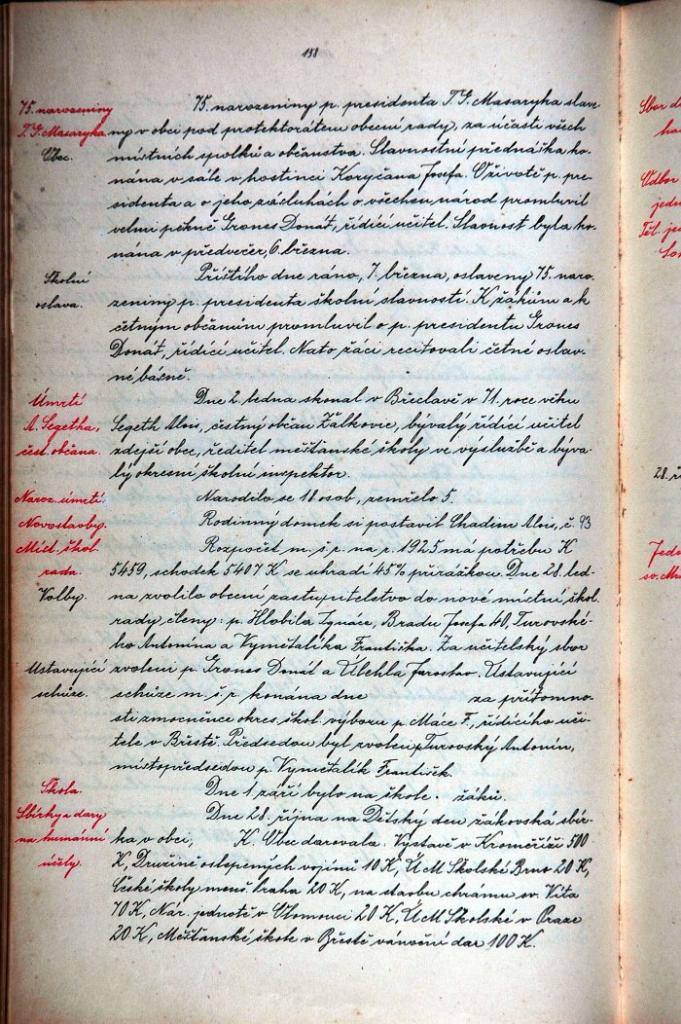 158
75. narozeniny
T. G. Masaryka.
Obec.
75. narozeniny p. presidenta T. G. Masaryka slave-
ny v obci pod protektorátem obecní rady, za účasti všech
místních spolků a občanstva. Slavnostní přednáška ko-
nána v sále v hostinci Koryčana Josefa. O životě p. pre-
sidenta a o jeho zásluhách o všechen národ promluvil
velmi pěkně Grones Donát, řídící učitel. Slavnost byla ko-
nána v předvečer, 6. března.
Školní
oslava.
Příštího dne ráno, 7. března, oslaveny 75. naro-
zeniny p. presidenta školní slavností. K žákům a k
četným občanům promluvil o p. presidentu Grones
Donát, řídící učitel. Nato žáci recitovali četné oslav-
né básně.
Úmrtí
A. Segetha,
čest. občana.
Dne 2. ledna skonal v Břeclavě v 71. roce věku
Segeth Alois, čestný občan Žalkovic, bývalý řídící učitel
zdejší obce, ředitel měšťanské školy ve výslužbě a býva-
lý okresní školní inspektor.
Naroz. úmrtí.
Narodilo se 18 osob, zemřelo 5.
Novostavby.
Rodinný domek si postavil Chadim Alois, č. 93
Míst. škol.
rada.
Rozpočet m. š. r. na r. 1925 má potřebu K
5459, schodek 5407 K se uhradí 45% přirážkou. Dne 28. led-
Volby.
na zvolilo obecní zastupitelstvo do nové místní škol.
rady členy: p. Hlobila Ignáce, Bradu Josefa 40, Turovské-
ho Antonína a Vymětalíka Františka. Za učitelský sbor
zvoleni p. Grones Donát a Úlehla Jaroslav. Ustavující
Ustavující
schůze.
schůze m. š. r. konána dne za přítomno-
sti zmocněnce okres. škol. výboru p. Máce F., řídícího uči-
tele v Břestě. Předsedou byl zvolen p. Turovský Antonín,
místopředsedou p. Vymětalík František.
Škola.
Dne 1. září bylo na škole žáků.
Sbírky a dary
na humanní
účely.
Dne 28. října na Dětský den žákovská sbír-
ka v obci, K. Obec darovala: Výstavě v Kroměříži 500
K, Družině oslepených vojínů 10 K, Ú M Školské Brno 20 K,
České školy menš. Praha 20 K, na stavbu chrámu sv. Víta
70 K, Nár. jednotě v Olomouci 20 K, Ú M Školské v Praze
20 K, Měšťanské škole v Břestě vánoční dar 100 K.
Sbor
Odbor
28.